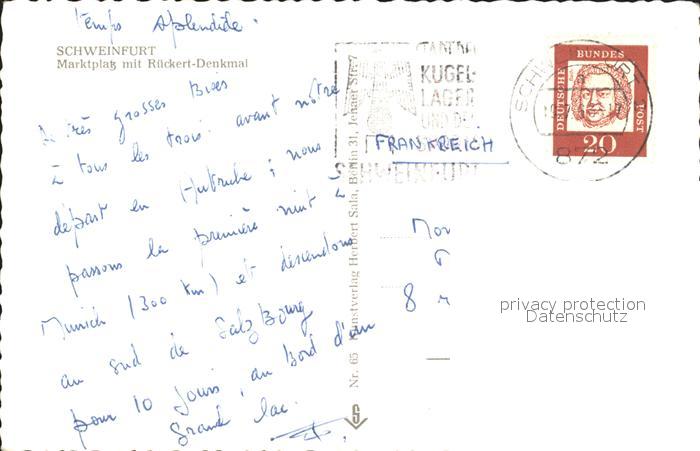 temps splendide.
SCHWEINFURT
Marktplatz mit Rückert-Denkmal
très grosses Bises
à tous les trois. avant notre
départ en Autriche ; nous
passons la première nuit à
Munich (300 km) et descendons
au sud de Salzbourg
pour 10 jours, au bord d'un
grand lac.
Nr. 65 Kunstverlag Herbert Sala, Berlin 31, Jenaer Str. 7
KUGEL-
LAGER
UND DER
SCHWEINFURT
FRANKREICH
SCHWEINFURT
872
DEUTSCHE
BUNDES
POST
20
Mon
8
privacy protection
Datenschutz
S